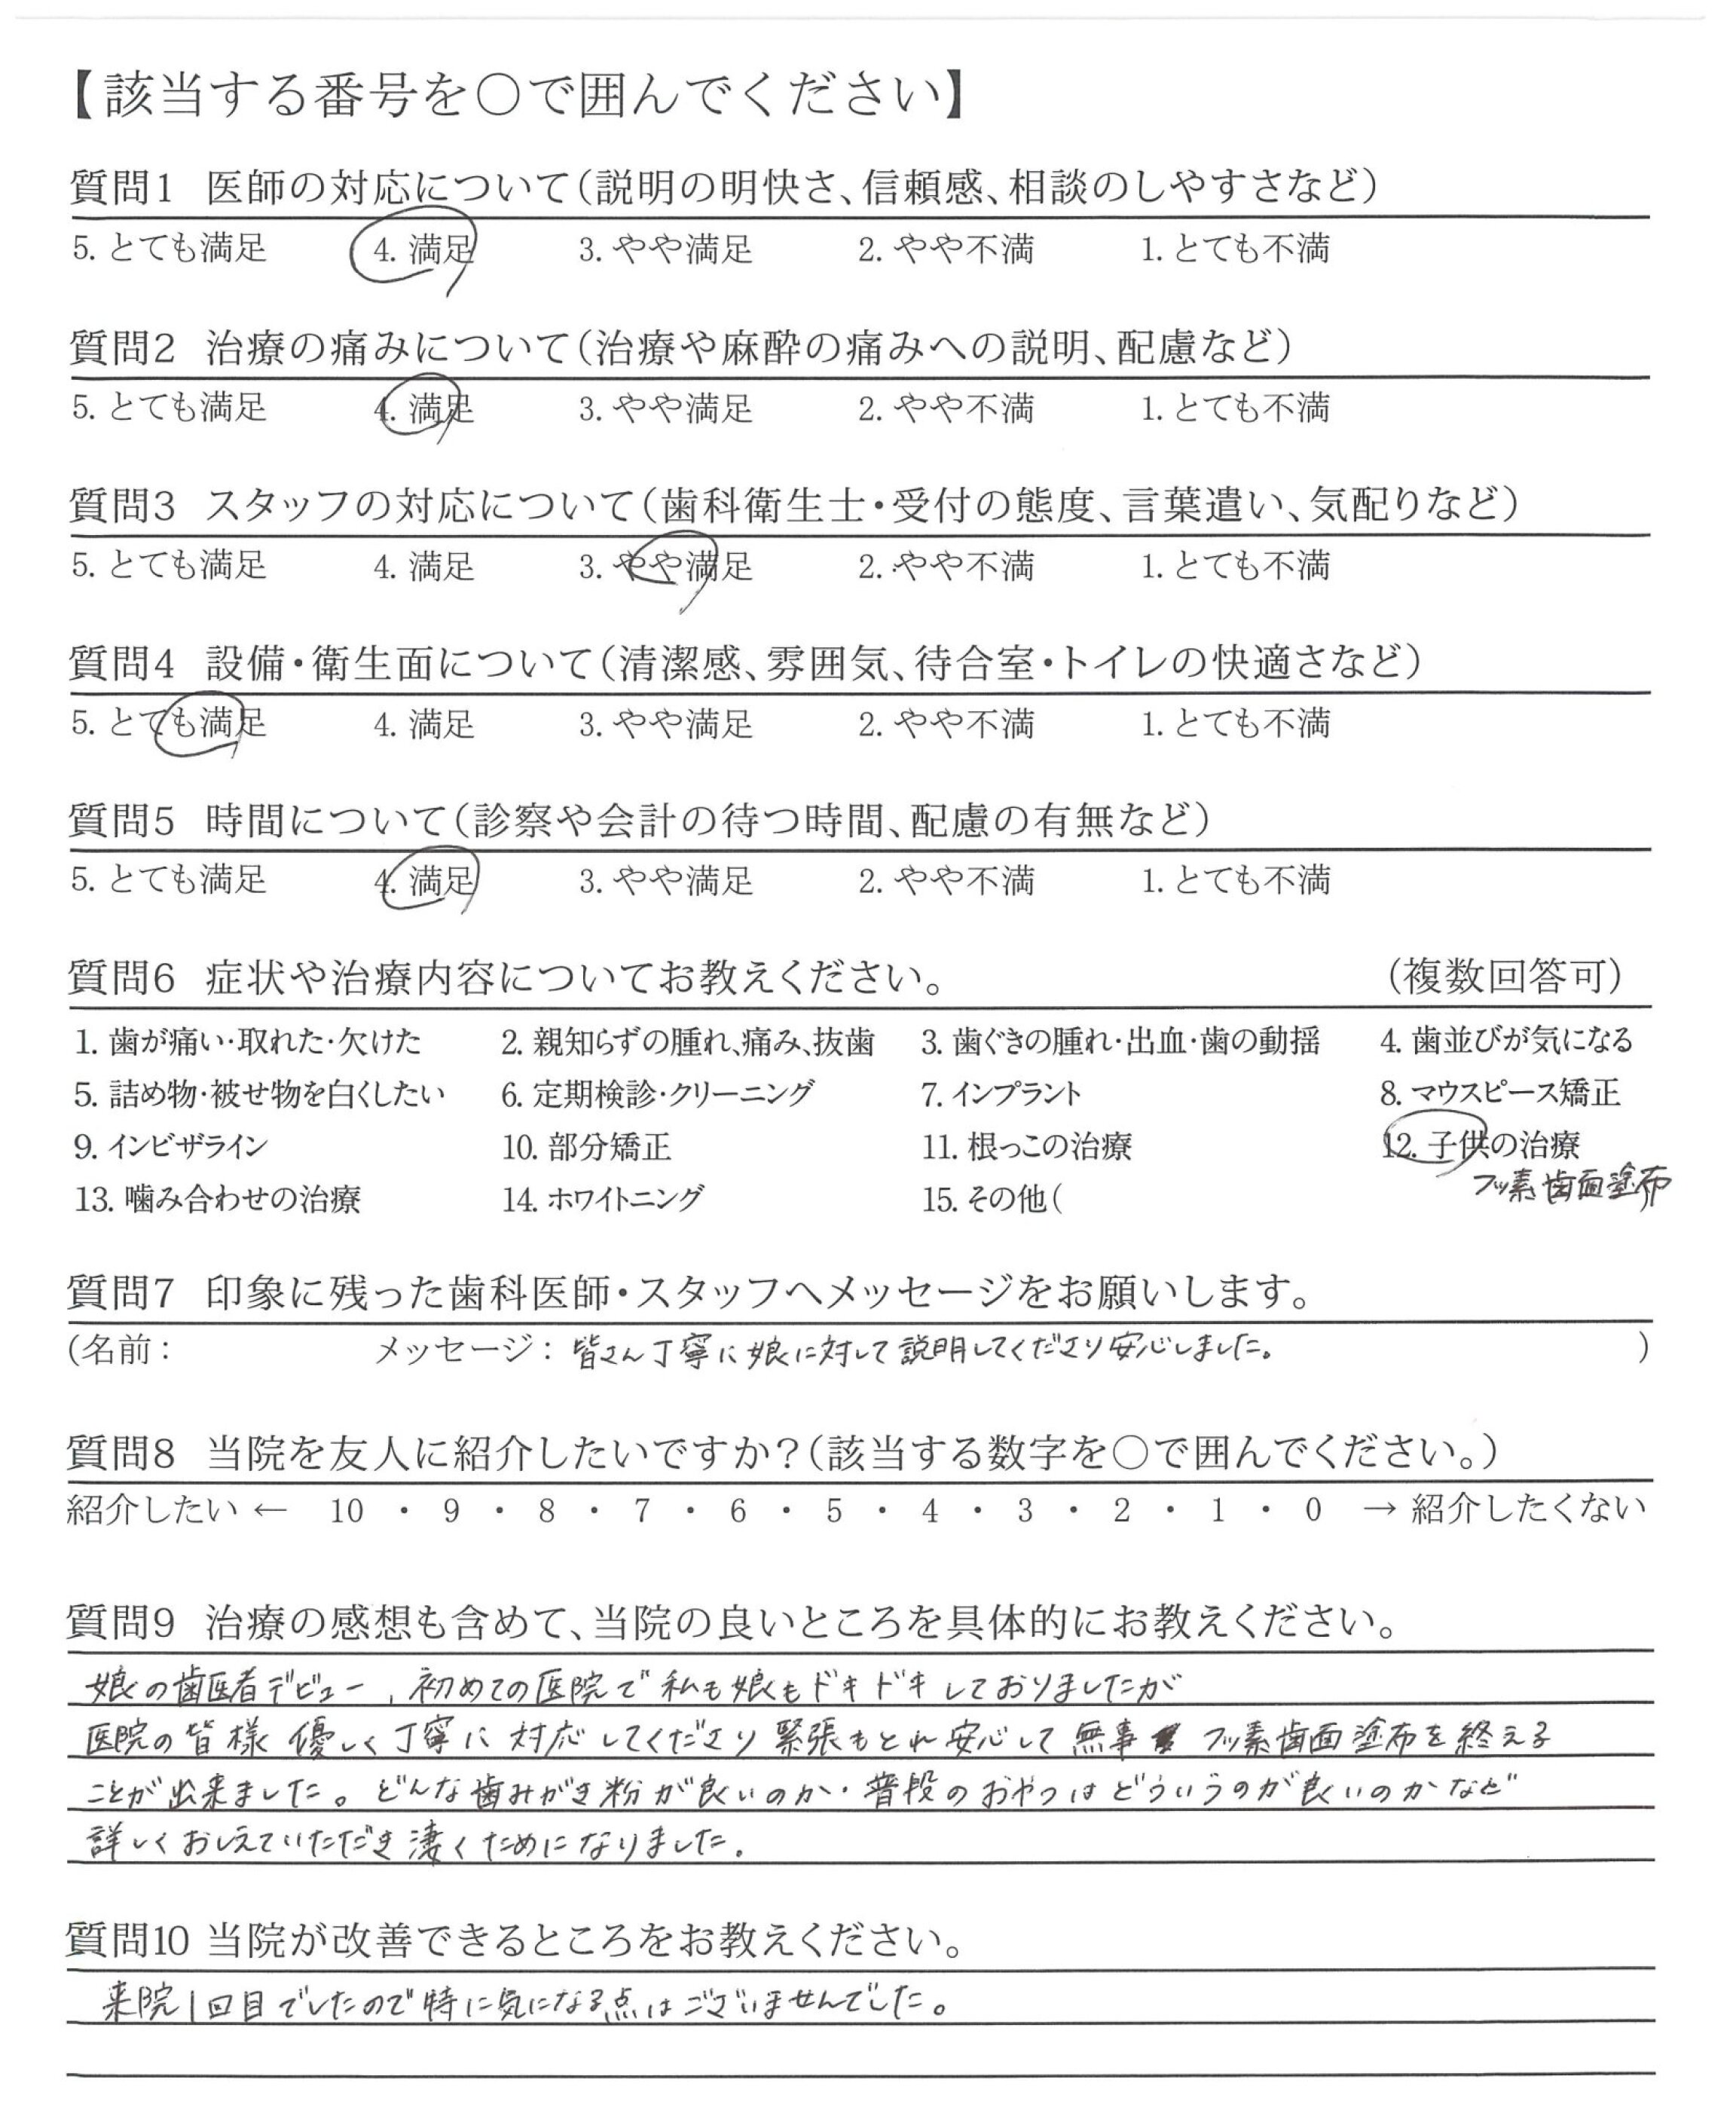 【該当する番号を○で囲んでください】
質問1 医師の対応について(説明の明快さ、信頼感、相談のしやすさなど)
5. とても満足 4. 満足 3. やや満足 2. やや不満 1. とても不満
質問2 治療の痛みについて(治療や麻酔の痛みへの説明、配慮など)
5. とても満足 4. 満足 3. やや満足 2. やや不満 1. とても不満
質問3 スタッフの対応について(歯科衛生士・受付の態度、言葉遣い、気配りなど)
5. とても満足 4. 満足 3. やや満足 2. やや不満 1. とても不満
質問4 設備・衛生面について(清潔感、雰囲気、待合室・トイレの快適さなど)
5. とても満足 4. 満足 3. やや満足 2. やや不満 1. とても不満
質問5 時間について(診察や会計の待つ時間、配慮の有無など)
5. とても満足 4. 満足 3. やや満足 2. やや不満 1. とても不満
質問6 症状や治療内容についてお教えください。 (複数回答可)
1. 歯が痛い・取れた・欠けた 2. 親知らずの腫れ、痛み、抜歯 3. 歯ぐきの腫れ・出血・歯の動揺 4. 歯並びが気になる
5. 詰め物・被せ物を白くしたい 6. 定期検診・クリーニング 7. インプラント 8. マウスピース矯正
9. インビザライン 10. 部分矯正 11. 根っこの治療 12. 子供の治療
フッ素歯面塗布
13. 噛み合わせの治療 14. ホワイトニング 15. その他( )
質問7 印象に残った歯科医師・スタッフへメッセージをお願いします。
(名前: メッセージ: 皆さん丁寧に娘に対して説明してくださり安心しました。 )
質問8 当院を友人に紹介したいですか?(該当する数字を○で囲んでください。)
紹介したい ← 10 ・ 9 ・ 8 ・ 7 ・ 6 ・ 5 ・ 4 ・ 3 ・ 2 ・ 1 ・ 0 → 紹介したくない
質問9 治療の感想も含めて、当院の良いところを具体的にお教えください。
娘の歯医者デビュー、初めての医院で私も娘もドキドキしておりましたが
医院の皆様 優しく丁寧に対応してくださり緊張もとれ安心して無事 フッ素歯面塗布を終える
ことが出来ました。どんな歯みがき粉が良いのか・普段のおやつはどういうのが良いのかなど
詳しくおしえていただき凄くためになりました。
質問10 当院が改善できるところをお教えください。
来院1回目でしたので特に気になる点はございませんでした。